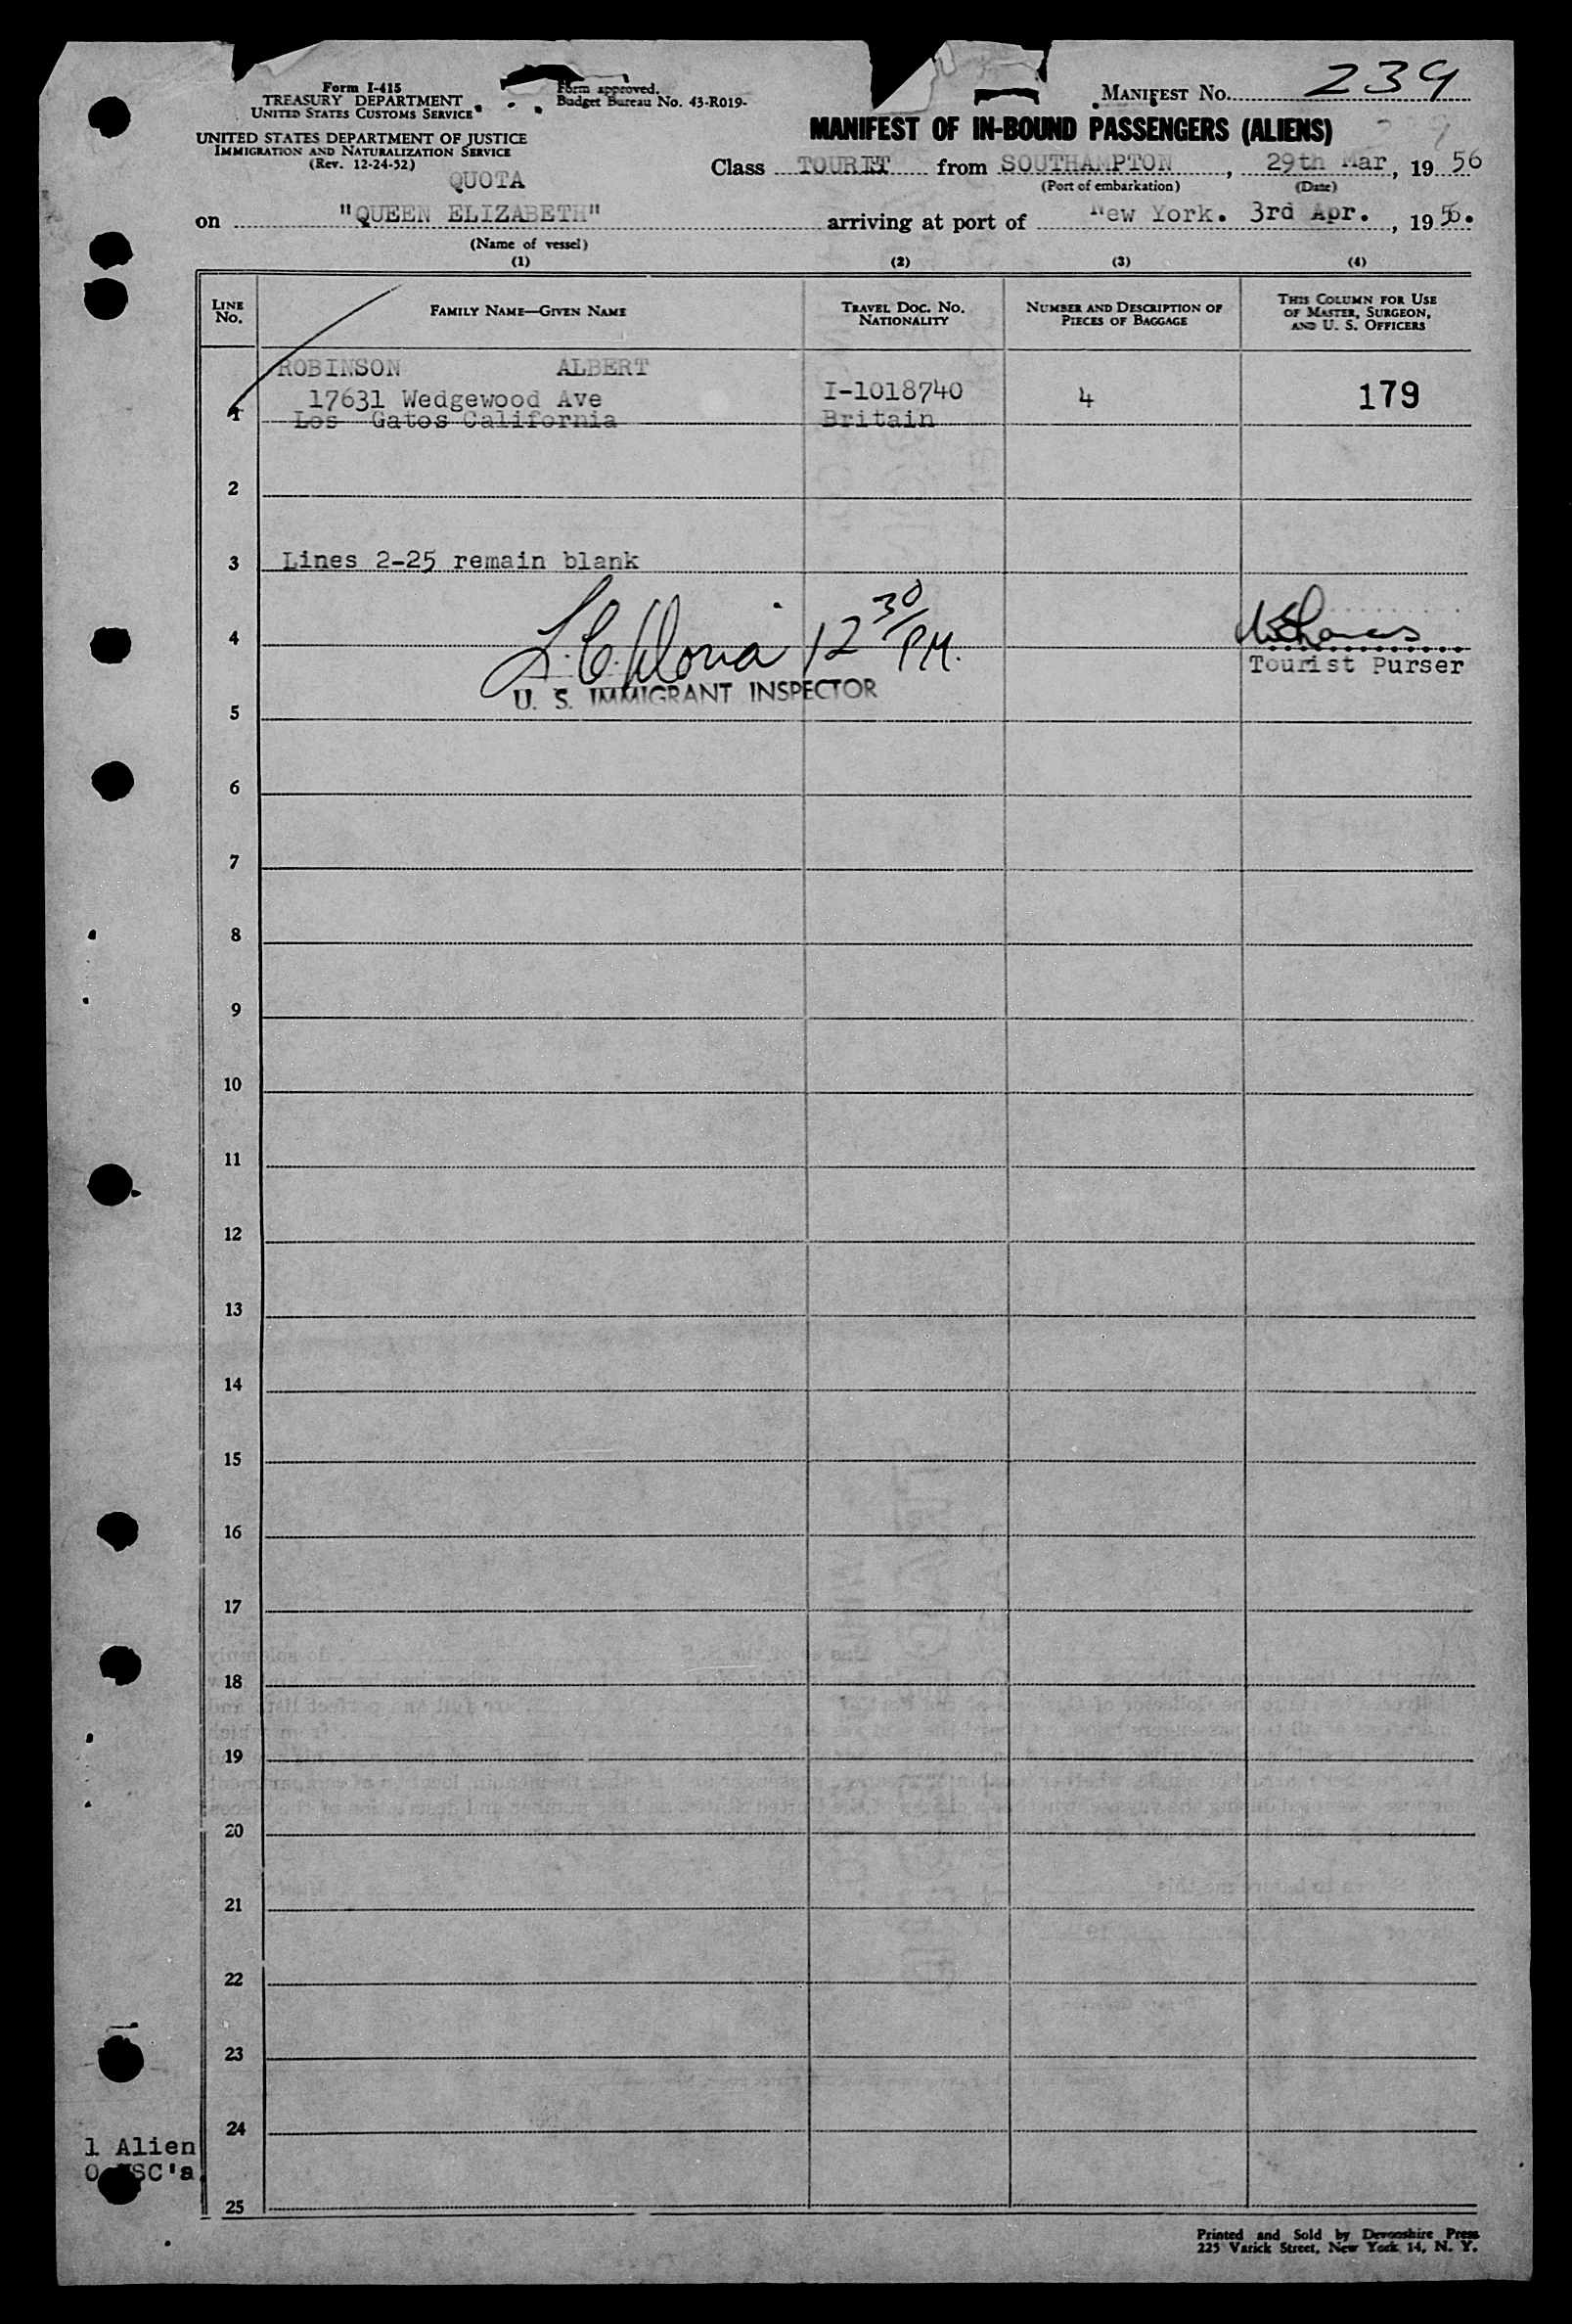 Form I-415
TREASURY DEPARTMENT
UNITED STATES CUSTOMS SERVICE
Form approved.
Budget Bureau No. 43-R019-
UNITED STATES DEPARTMENT OF JUSTICE
IMMIGRATION AND NATURALIZATION SERVICE
(Rev. 12-24-52)
QUOTA
MANIFEST NO. 239
MANIFEST OF IN-BOUND PASSENGERS (ALIENS)
Class TOURIST from SOUTHAMPTON, 29th Mar, 1956
(Port of embarkation) (Date)
on "QUEEN ELIZABETH" arriving at port of New York. 3rd Apr., 1956.
(Name of vessel)
(1) (2) (3) (4)
LINE NO. FAMILY NAME—GIVEN NAME TRAVEL DOC. NO. NATIONALITY NUMBER AND DESCRIPTION OF PIECES OF BAGGAGE THIS COLUMN FOR USE OF MASTER, SURGEON, AND U. S. OFFICERS
ROBINSON ALBERT
17631 Wedgewood Ave I-1018740 4 179
1 Los Gatos California Britain
2
3 Lines 2-25 remain blank
12 30/PM.
4
Tourist Purser
U. S. IMMIGRANT INSPECTOR
5
6
7
8
9
10
11
12
13
14
15
16
17
18
19
20
21
22
23
24
1 Alien
0 USC's
25
Printed and Sold by Devonshire Press
225 Varick Street, New York 14, N. Y.